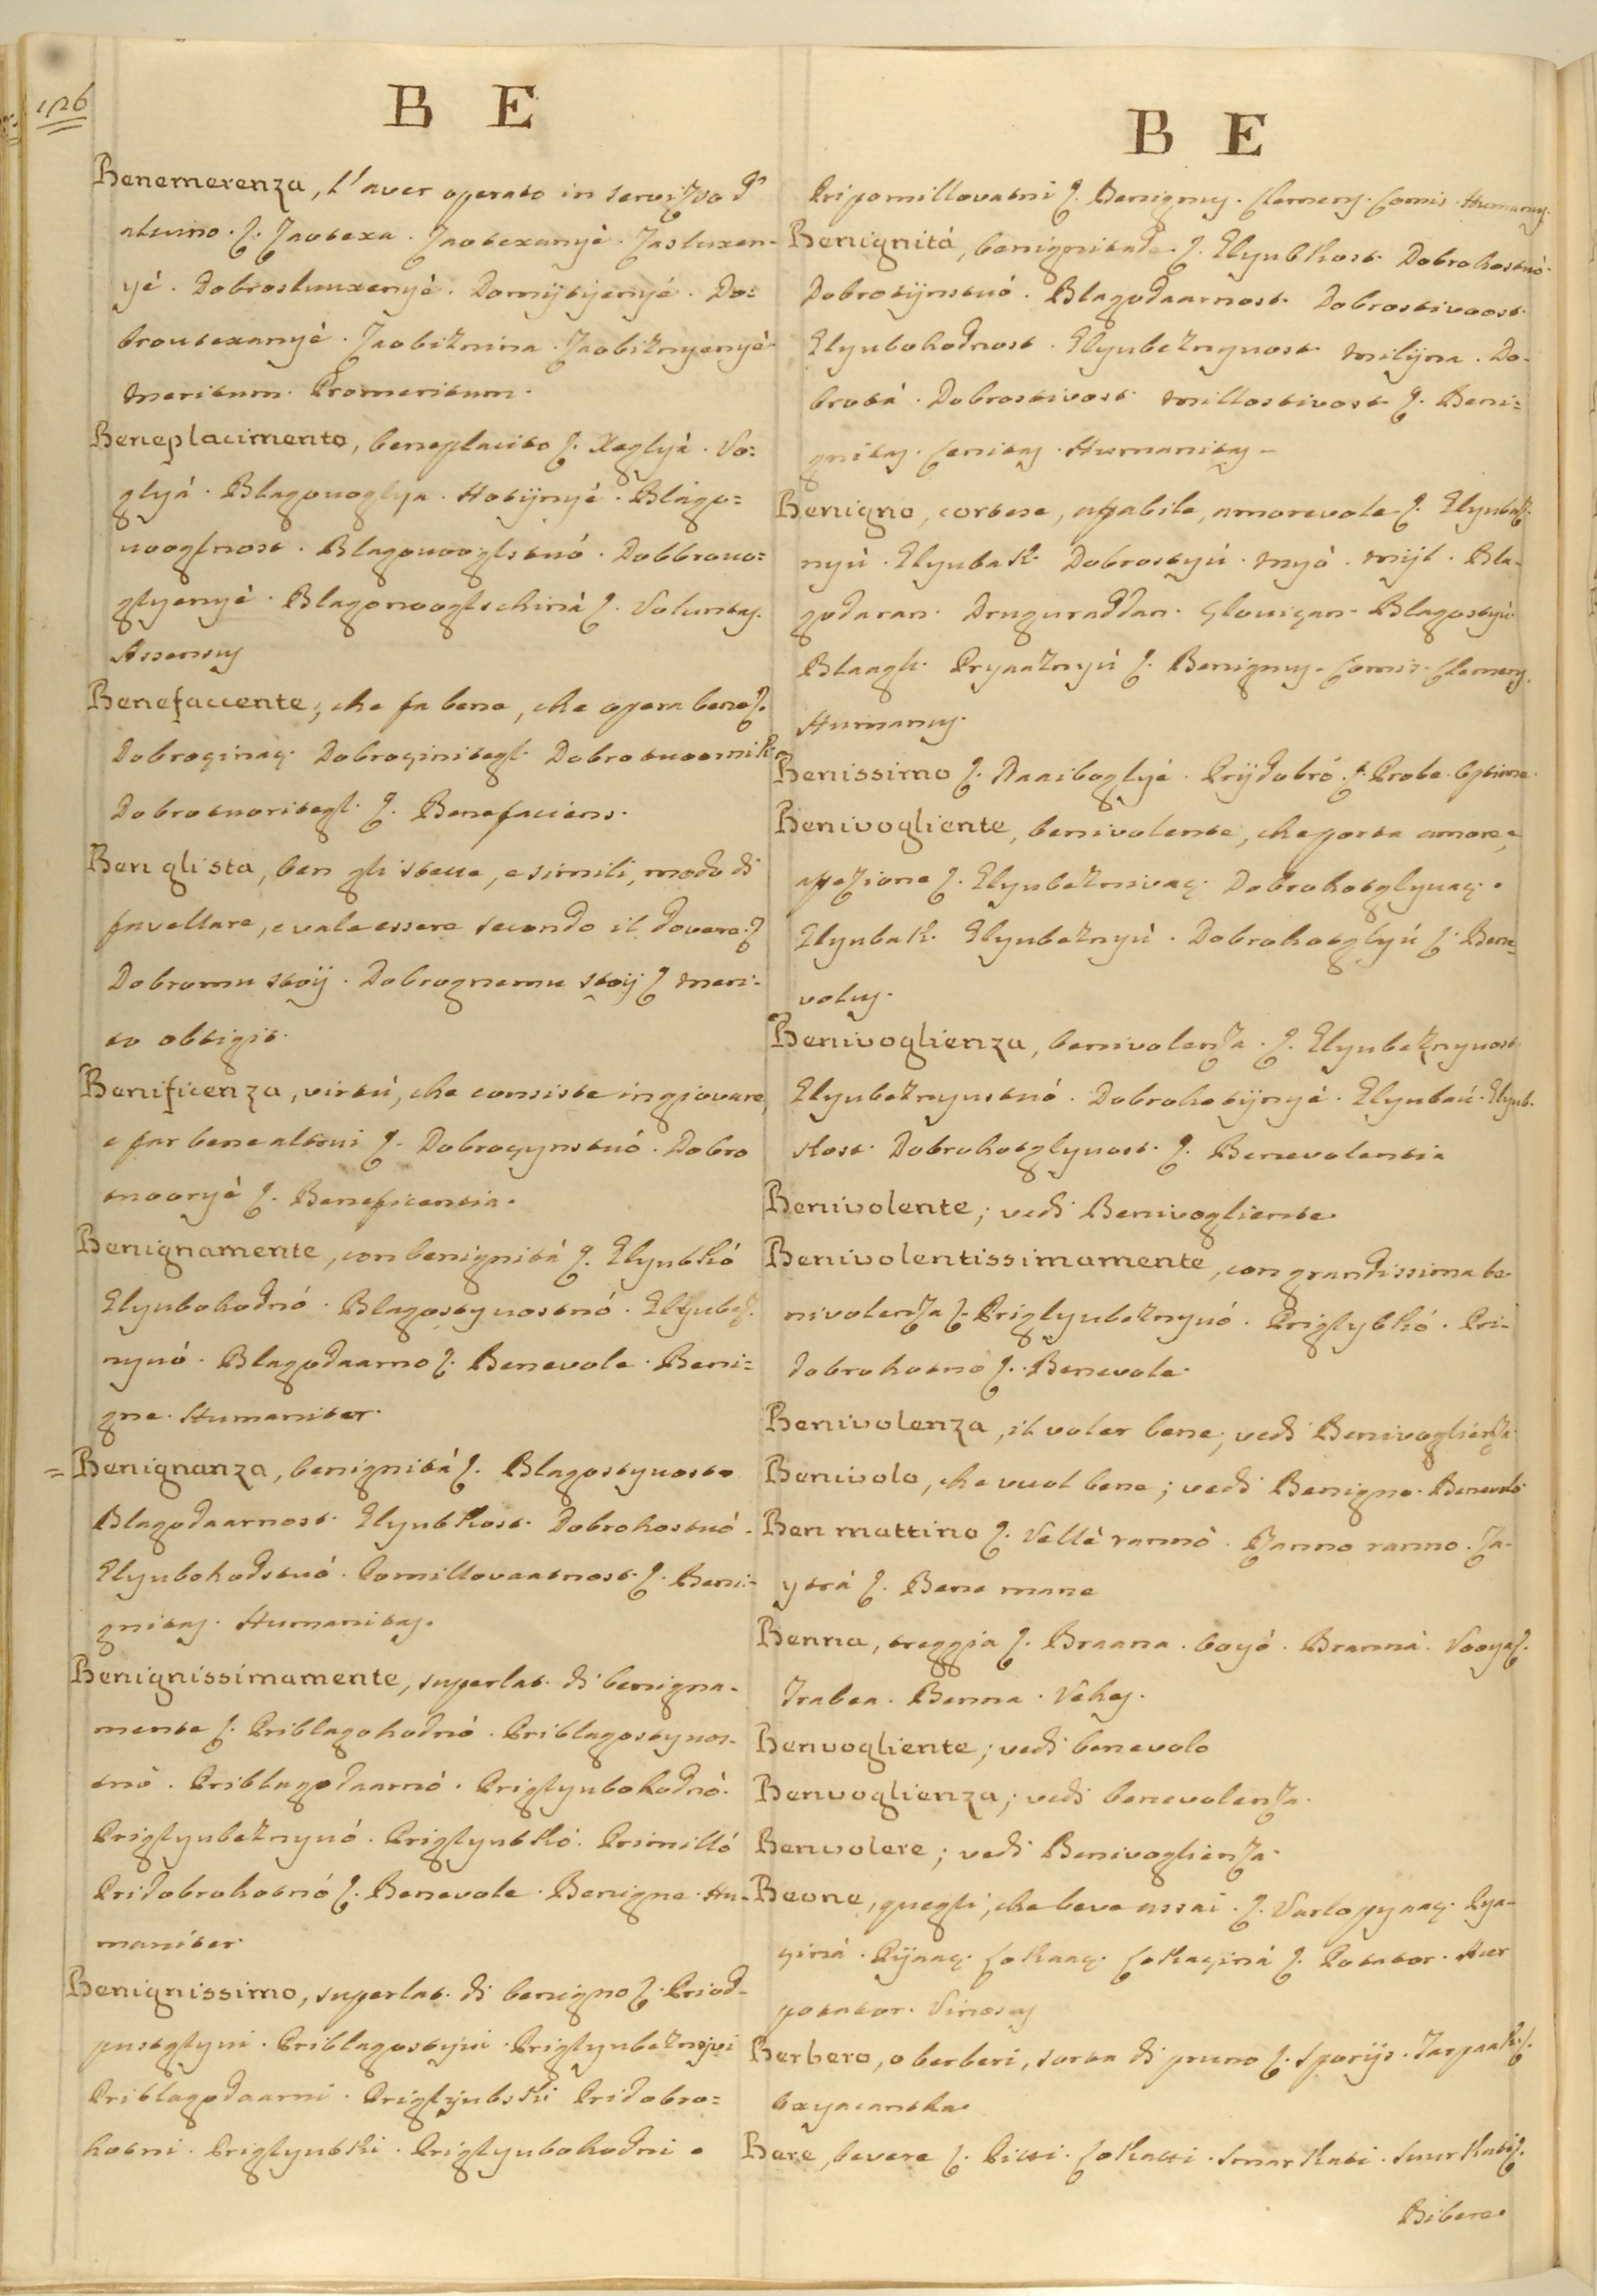 126
B E
Benemerenza, l'aver operato in servizio d'
alcuno. ʃ. Zaotexa. Zaotexanyè. Zasluxen-
yè. Dobrosluuxenyè. Domÿtÿenyè. Do=
broutexanyè. Zaobixnina. Zaobixnyenyè
meritum. Promeritum.
Beneplacimento, beneplacito ʃ. Xeglyà. Vo=
glyá. Blagouoglya. Hotÿnyè. Blago=
uooglnost. Blagouooglstuó. Dobbrouo=
glyenyè. Blagonooglschinà ʃ. Voluntas.
Assensus
Benefaccente, che fa bene, che opera bene ʃ.
Dobroçinaç. Dobroçinitegl. Dobrotuoornik.
Dobrotuoritegl. ʃ. Benefaciens.
Ben gli sta, ben gli stette, e simili, modo di
favellare, e vale essere secondo il dovere. ʃ
Dobromu stoÿ. Dobrognemu stoÿ ʃ meri-
to obtigit.
Benificenza, virtù, che consiste in giovare,
e far bene altrui ʃ. Dobroçynstuó. Dobro
tuooryè ʃ. Beneficentia.
Benignamente, con benignità ʃ. Glyubkó
Glyubohodnó. Blagostyuostnó. Glyubez-
nyuó. Blagodaarno ʃ. Benevole. Beni=
gne. Humaniter.
= Benignanza, benignità ʃ. Blagostyuost.
Blagodaarnost. Glyubkost. Dobrohostuó.
Glyubohodstuó. Pomillovaatnost. ʃ. Beni-
gnitas. Humanitas.
Benignissimamente, superlat. di benigna-
mente ʃ. Priblagohodnó. Priblagostyuos-
tnó. Priblagodaarnó. Priglyubohodnó.
Priglyubeznyuó. Priglyubkó. Primilló
Pridobrohotnó ʃ. Benevole. Benigne. Hu-
maniter.
Benignissimo, superlat. di benigno ʃ. Priod-
pusteglyui. Priblagostyui. Priglyubeznyvi
Priblagodaarni. Priglyubski Pridobro=
hotni. Priglyubki. Priglyubohodni.
B E
Pripomillovatni ʃ. Benignus. Clemens. Comis. Humanus.
Benignitá, benignitade. ʃ. Glyubkost. Dobrohostuó.
Dobrotÿnstuó. Blagodaarnost. Dobrostivoost.
Glyubohodnost. Glyubeznyuost. milÿna. Do-
brotá. Dobrostivost. millostivost. ʃ. Beni=
gnitas. Lenitas. Humanitas.
Benigno, cortese, affabile, amorevole ʃ. Glyubez-
nyù. Glyubak. Dobrostyú. myò. mÿl. Bla-
godaran. Druguraddan. Slouiçan. Blagostyù.
Blaagh. Pryaaznyú ʃ. Benignus. Comis. Clemens.
Humanus.
Benissimo ʃ. Naaiboglyé. Prÿdobró. ʃ. Probe. Optime.
Benivogliente, benivolente, che porta amore, e
affezione ʃ. Glyubeznivaç. Dobrohotglyuaç.
Glyubak. Glyubeznyù. Dobrohotglyú ʃ. Bene-
volus.
Benivoglienza, benivolenza. ʃ. Glyubeznyuost.
Glyubeznyustuó. Dobrohotÿnyè. Glyubaú. Glyub-
kost. Dobrohotglyuost. ʃ. Benevolentia
Benivolente; vedi Benivogliente.
Benivolentissimamente, con grandissima be-
nivolenza ʃ. Priglyubeznyuó. Priglybkó. Pri-
dobrohotno ʃ. Benevole.
Benivolenza, il voler bene; vedi Benivoglienza.
Benivolo, che vuol bene; vedi Benigno. Benevolo.
Ben mattino ʃ. Vellè rannò. Ranno ranno. Za-
ytrá ʃ. Bene mane
Benna, treggia ʃ. Braana. boyó. Branná. Vooya ʃ.
Trabea. Benna. Vehes.
Benvogliente; vedi benevolo
Benvoglienza; vedi benevolenza.
Benvolere; vedi Benivoglienza.
Beone, quegli, che beve assai. ʃ. Varlopyaaç. Pya-
çinà. Pÿaaç. Lokaaç. Lokaçiná ʃ. Potator. Acer
potator. Vinosus
Berbero, o berberi, sorta di pruno ʃ. Sporÿs. Tarpaak ʃ.
oxyacantha.
Bere, bevere ʃ. Pitti. Lokatti. Smarkati. Suurkati ʃ.
Bibere.